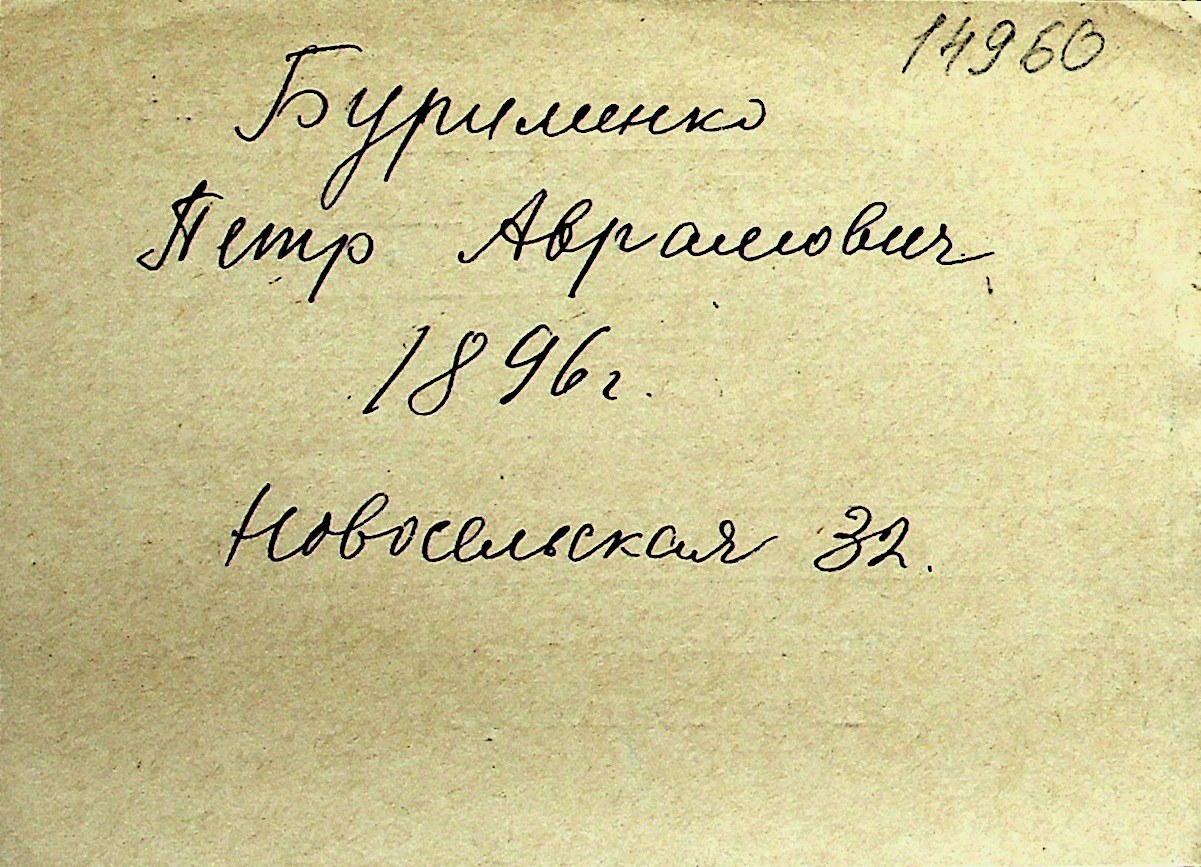 14960
Бурименко
Петр Аврамович
1896г.
Новосельская 32.